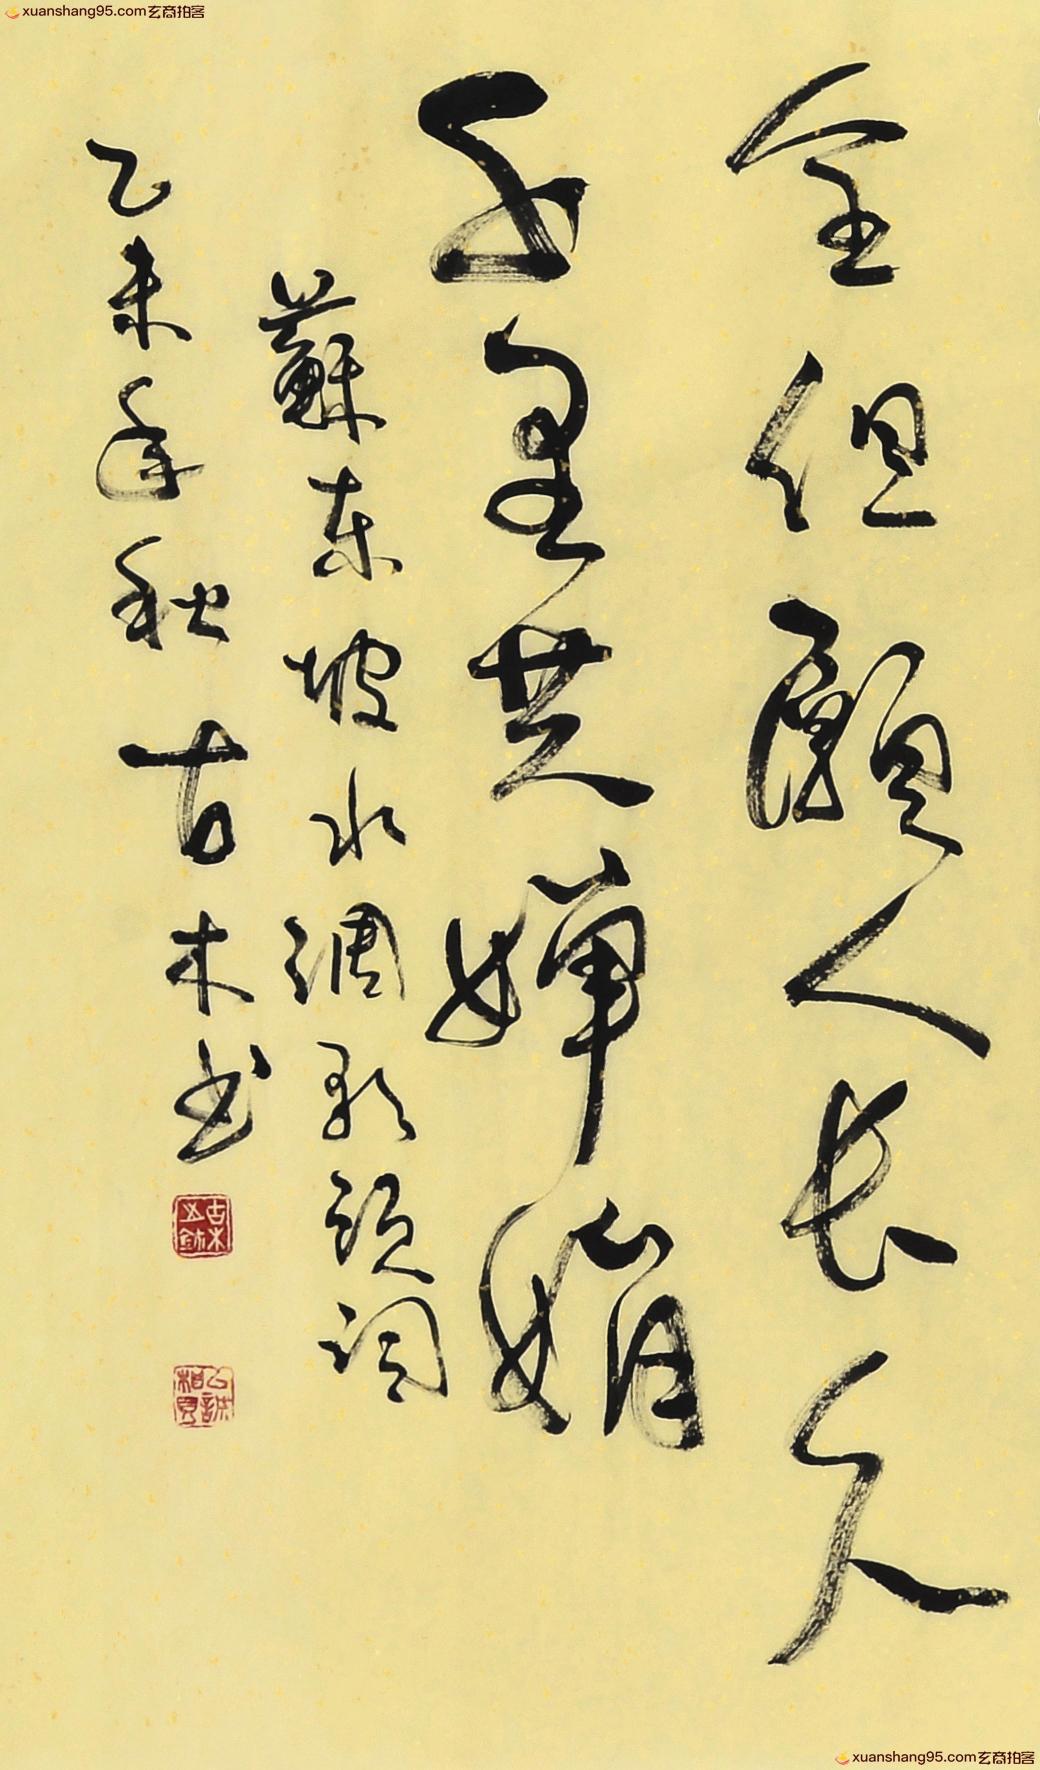 xuanshang95.com玄商拍客
全但願人長久
千里共嬋娟
蘇東坡水調歌頭詞
乙未年秋古木書
以誠相見
xuanshang95.com玄商拍客